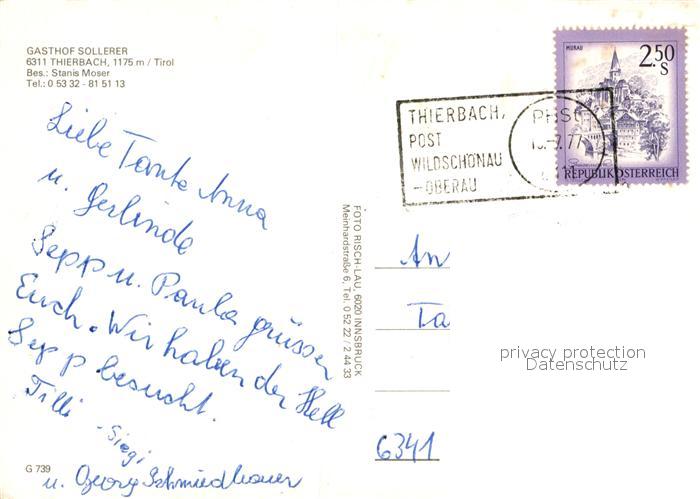 GASTHOF SOLLERER
6311 THIERBACH, 1175 m / Tirol
Bes.: Stanis Moser
Tel.: 0 53 32 - 81 51 13
Liebe Tante Anna
u. Gerlinde
Sepp u. Paula grüssen
Euch. Wir haben den Hell
Sepp besucht.
Tilli
- Siegi
u. Georg Schmiedbauer
G 739
FOTO RISCH-LAU, 6020 INNSBRUCK
Meinhardstraße 6, Tel. 0 52 22 / 2 44 33
MURAU
2.50
S
REPUBLIK ÖSTERREICH
THIERBACH,
POST
WILDSCHÖNAU
-OBERAU
POST
An
Ta
privacy protection
Datenschutz
6341